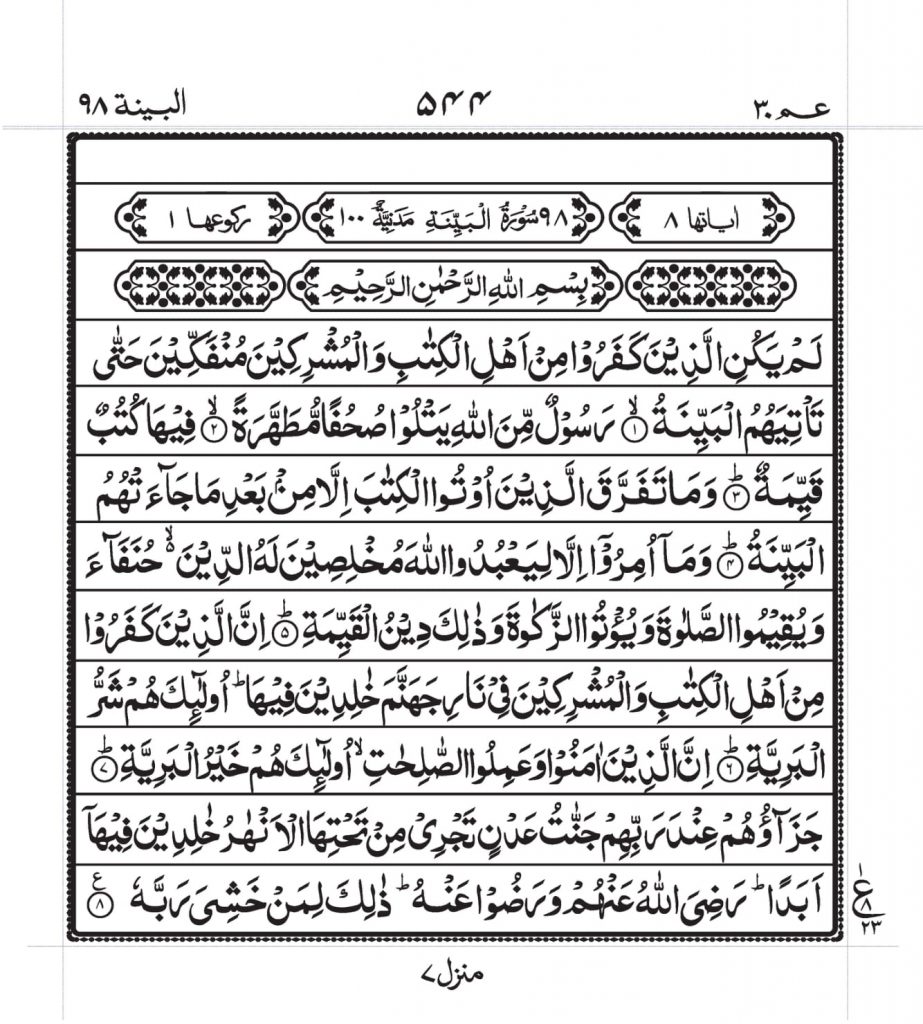 عم ٣٠ ۵۴۴ البينة ٩٨
اٰياتها ٨ ٩٨ سُوْرَةُ الْبَيِّنَةِ مَدَنِيَّةٌ ١٠٠ ركوعها ١
بِسْمِ اللهِ الرَّحْمٰنِ الرَّحِيْمِ
لَمْ يَكُنِ الَّذِيْنَ كَفَرُوْا مِنْ اَهْلِ الْكِتٰبِ وَالْمُشْرِكِيْنَ مُنْفَكِّيْنَ حَتّٰى
تَاْتِيَهُمُ الْبَيِّنَةُ ۙ﴿۱﴾ رَسُوْلٌ مِّنَ اللهِ يَتْلُوْا صُحُفًا مُّطَهَّرَةً ۙ﴿۲﴾ فِيْهَا كُتُبٌ
قَيِّمَةٌ ؕ﴿۳﴾ وَمَا تَفَرَّقَ الَّذِيْنَ اُوْتُوا الْكِتٰبَ اِلَّا مِنْۢ بَعْدِ مَا جَآءَتْهُمُ
الْبَيِّنَةُ ؕ﴿۴﴾ وَمَاۤ اُمِرُوْۤا اِلَّا لِيَعْبُدُوا اللهَ مُخْلِصِيْنَ لَهُ الدِّيْنَ ۙ۬ حُنَفَآءَ
وَيُقِيْمُوا الصَّلٰوةَ وَيُؤْتُوا الزَّكٰوةَ وَذٰلِكَ دِيْنُ الْقَيِّمَةِ ؕ﴿۵﴾ اِنَّ الَّذِيْنَ كَفَرُوْا
مِنْ اَهْلِ الْكِتٰبِ وَالْمُشْرِكِيْنَ فِيْ نَارِ جَهَنَّمَ خٰلِدِيْنَ فِيْهَا ؕ اُولٰٓئِكَ هُمْ شَرُّ
الْبَرِيَّةِ ؕ﴿۶﴾ اِنَّ الَّذِيْنَ اٰمَنُوْا وَعَمِلُوا الصّٰلِحٰتِ ۙ اُولٰٓئِكَ هُمْ خَيْرُ الْبَرِيَّةِ ؕ﴿۷﴾
جَزَآؤُهُمْ عِنْدَ رَبِّهِمْ جَنّٰتُ عَدْنٍ تَجْرِيْ مِنْ تَحْتِهَا الْاَنْهٰرُ خٰلِدِيْنَ فِيْهَاۤ
اَبَدًا ؕ رَضِيَ اللهُ عَنْهُمْ وَرَضُوْا عَنْهُ ؕ ذٰلِكَ لِمَنْ خَشِيَ رَبَّهٗ ﴿۸﴾ ع
ع ٨ ٢٣
منزل ٧